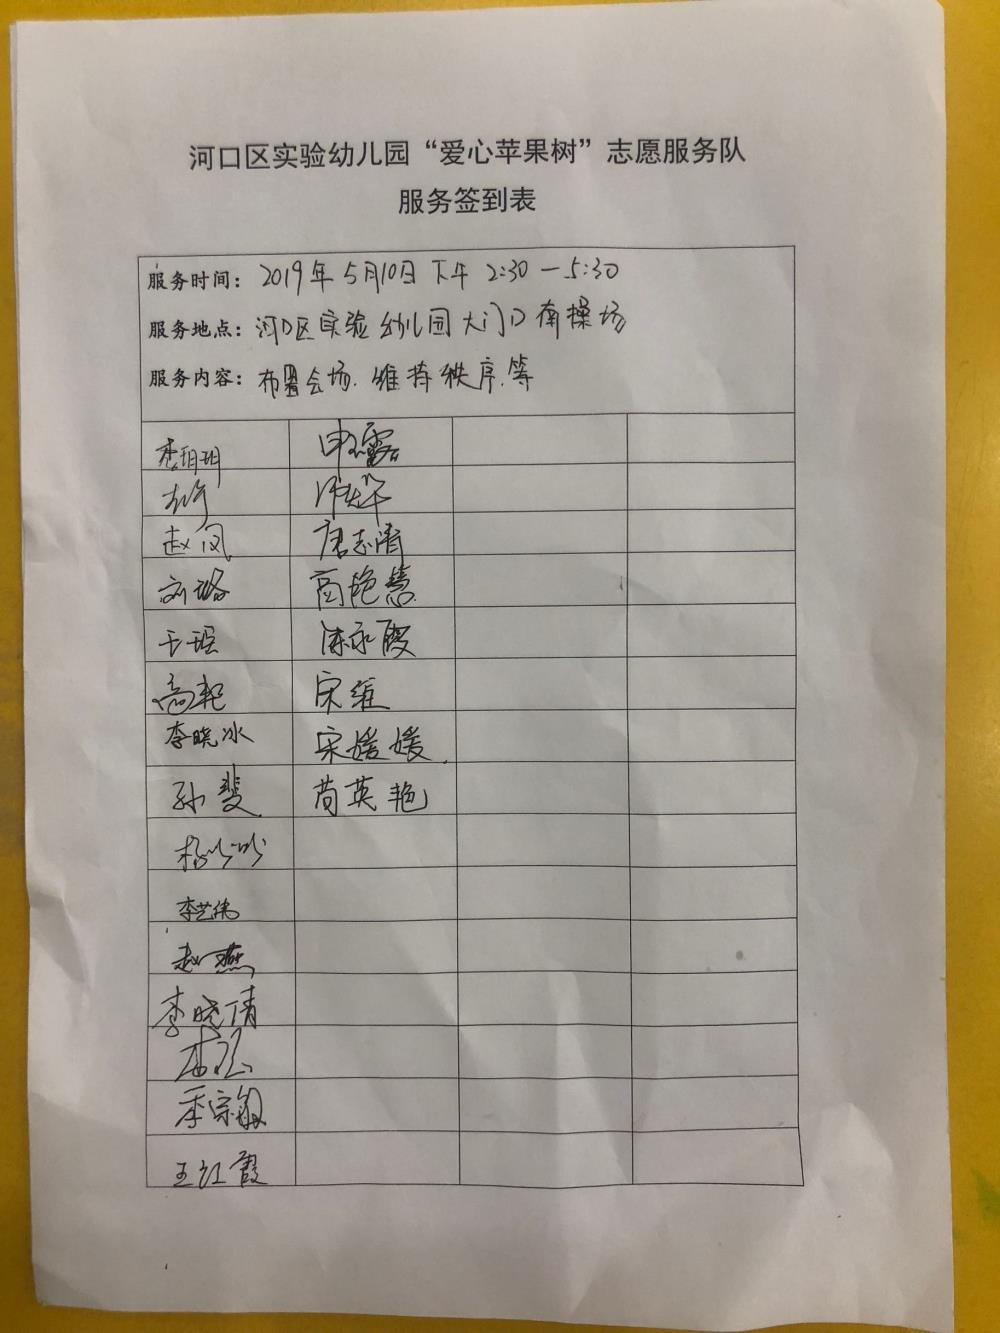 河口区实验幼儿园“爱心苹果树”志愿服务队
服务签到表
服务时间：2019年5月10日下午2:30—5:30
服务地点：河口区实验幼儿园大门口南操场
服务内容：布置会场.维持秩序.等
李玥玥
赵凤 唐志清
刘璐 商艳慧
于瑶 陈永霞
高艳 宋维
李晓冰 宋媛媛
孙斐 苘英艳
李艺伟
赵燕
李晓倩
季宗敏
王红霞